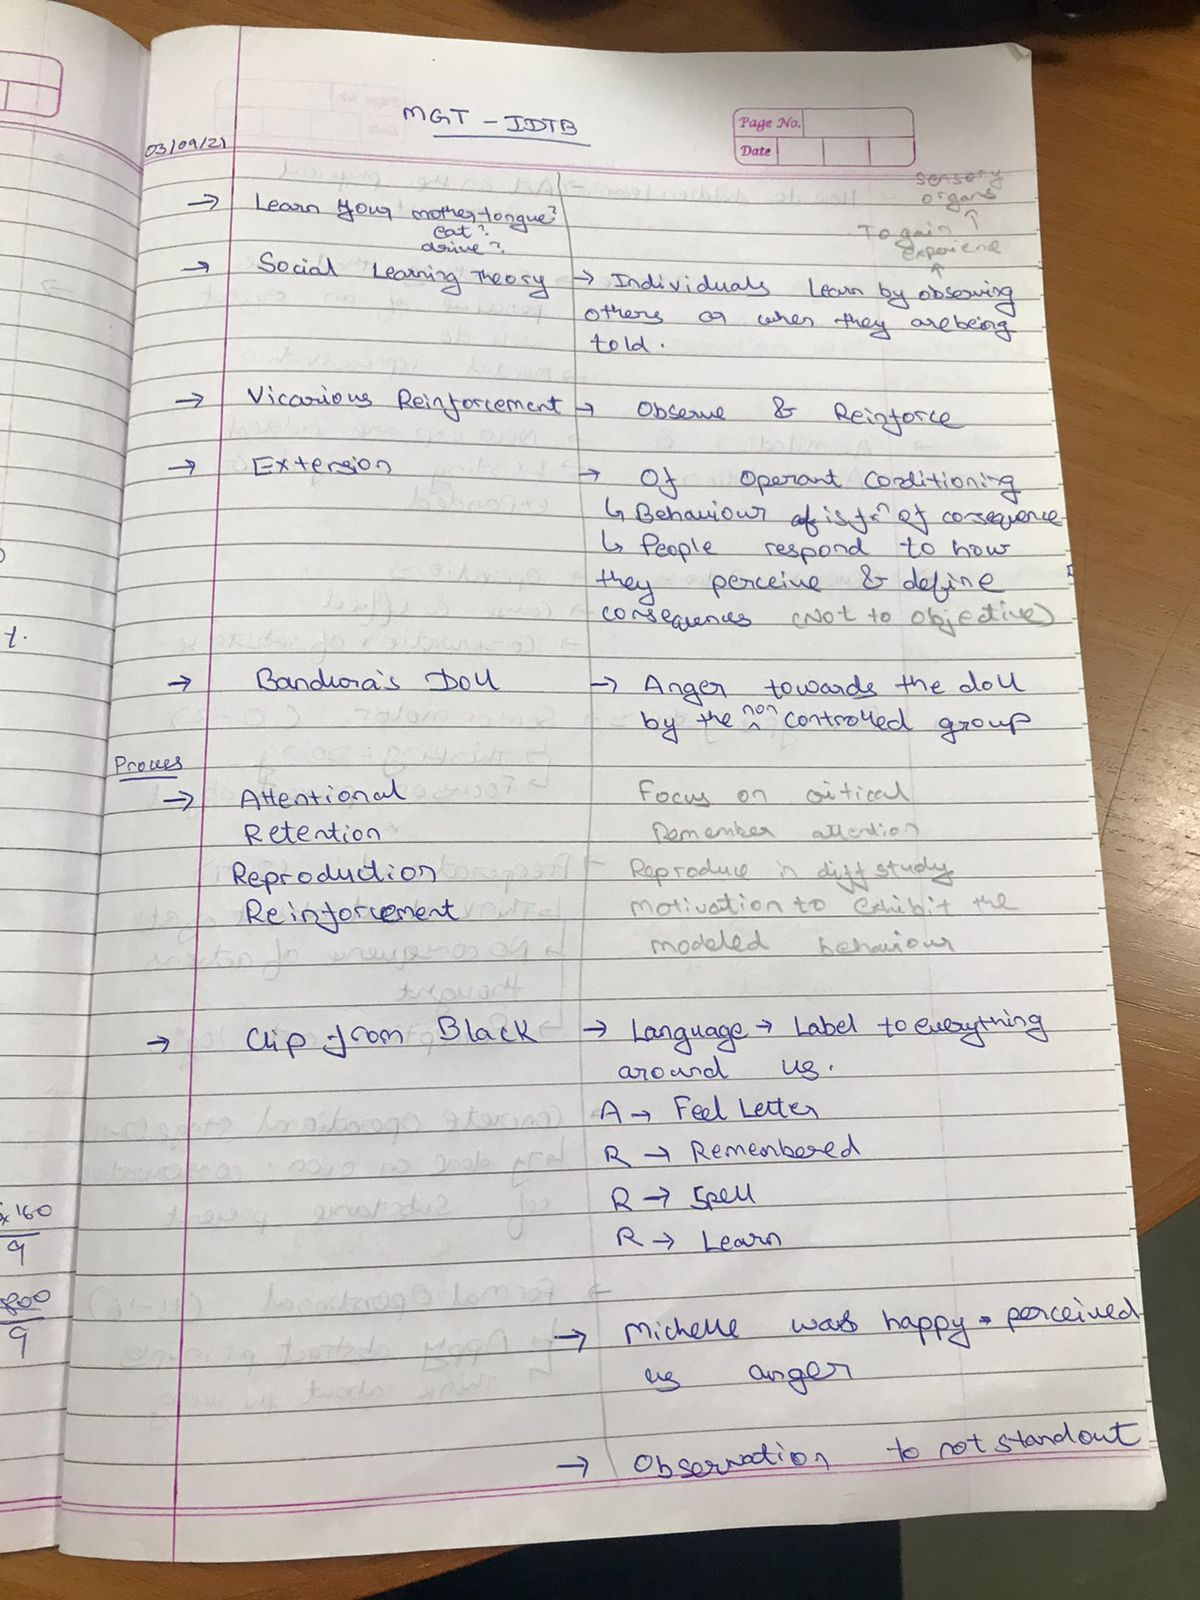 MGT - IDTB
Page No.
Date
03/09/21
sensory
organs
→ Learn your mother tongue?
eat?
drive?
To gain ↑
experience
↑
→ Social Learning Theory → Individuals learn by observing
others or when they are being
told.
→ Vicarious Reinforcement → Observe & Reinforce
→ Extension → Of Operant Conditioning
↳ Behaviour is fxⁿ of consequence
↳ People respond to how
they perceive & define
consequences (Not to objective)
→ Bandura's Doll → Anger towards the doll
by the non controlled group
Proves
→ Attentional Focus on critical
Retention Remember attention
Reproduction Reproduce in diff study
Reinforcement Motivation to exhibit the
modeled behaviour
→ Clip from Black → Language → Label to everything
around us.
A → Feel Letter
R → Remembered
R → Spell
R → Learn
x 160
9
800
9
t.
→ Michelle was happy perceived
us anger
→ Observation to not standout